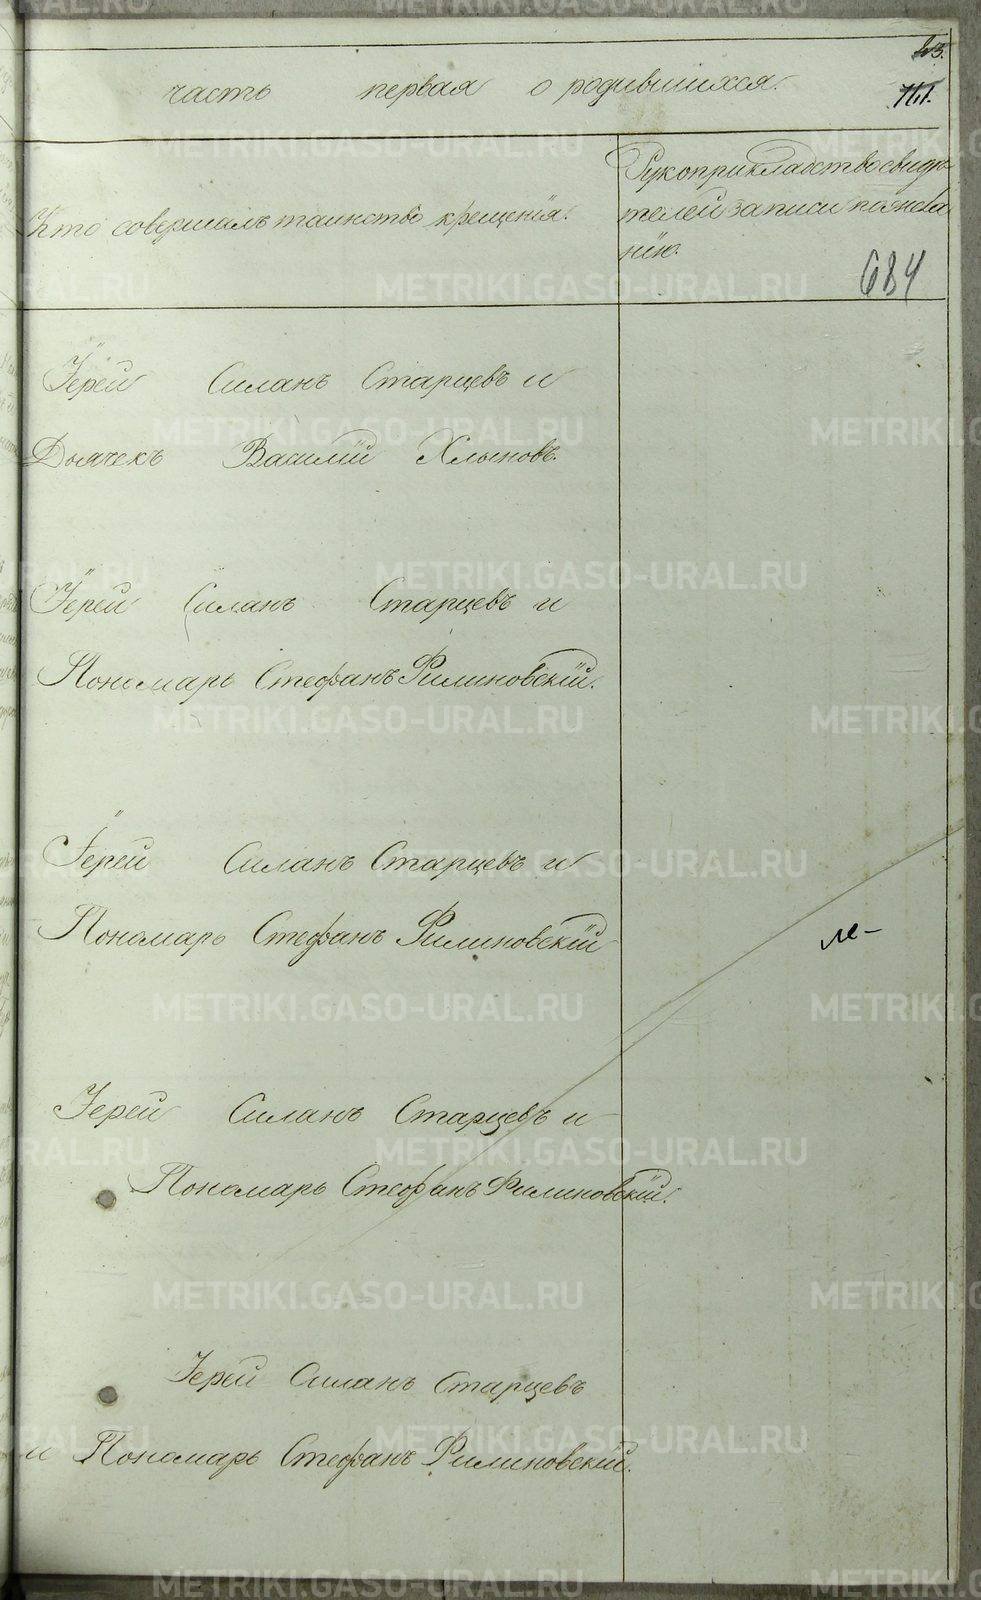 часть первая о родившихся.
Кто совершалъ таинство крещенія.
Рукоприкладство свидѣ
телей записи по жела
нію.
684
Іерей Силанъ Старцевъ и
Дьячекъ Василій Хлыновъ.
Іерей Силанъ Старцевъ и
Пономарь Стефанъ Филиновскій.
Іерей Силанъ Старцевъ и
Пономарь Стефанъ Филиновскій
Іерей Силанъ Старцевъ и
Пономарь Стефанъ Филиновскій.
Іерей Силанъ Старцевъ
и Пономарь Стефанъ Филиновскій.
METRIKI.GASO-URAL.RU